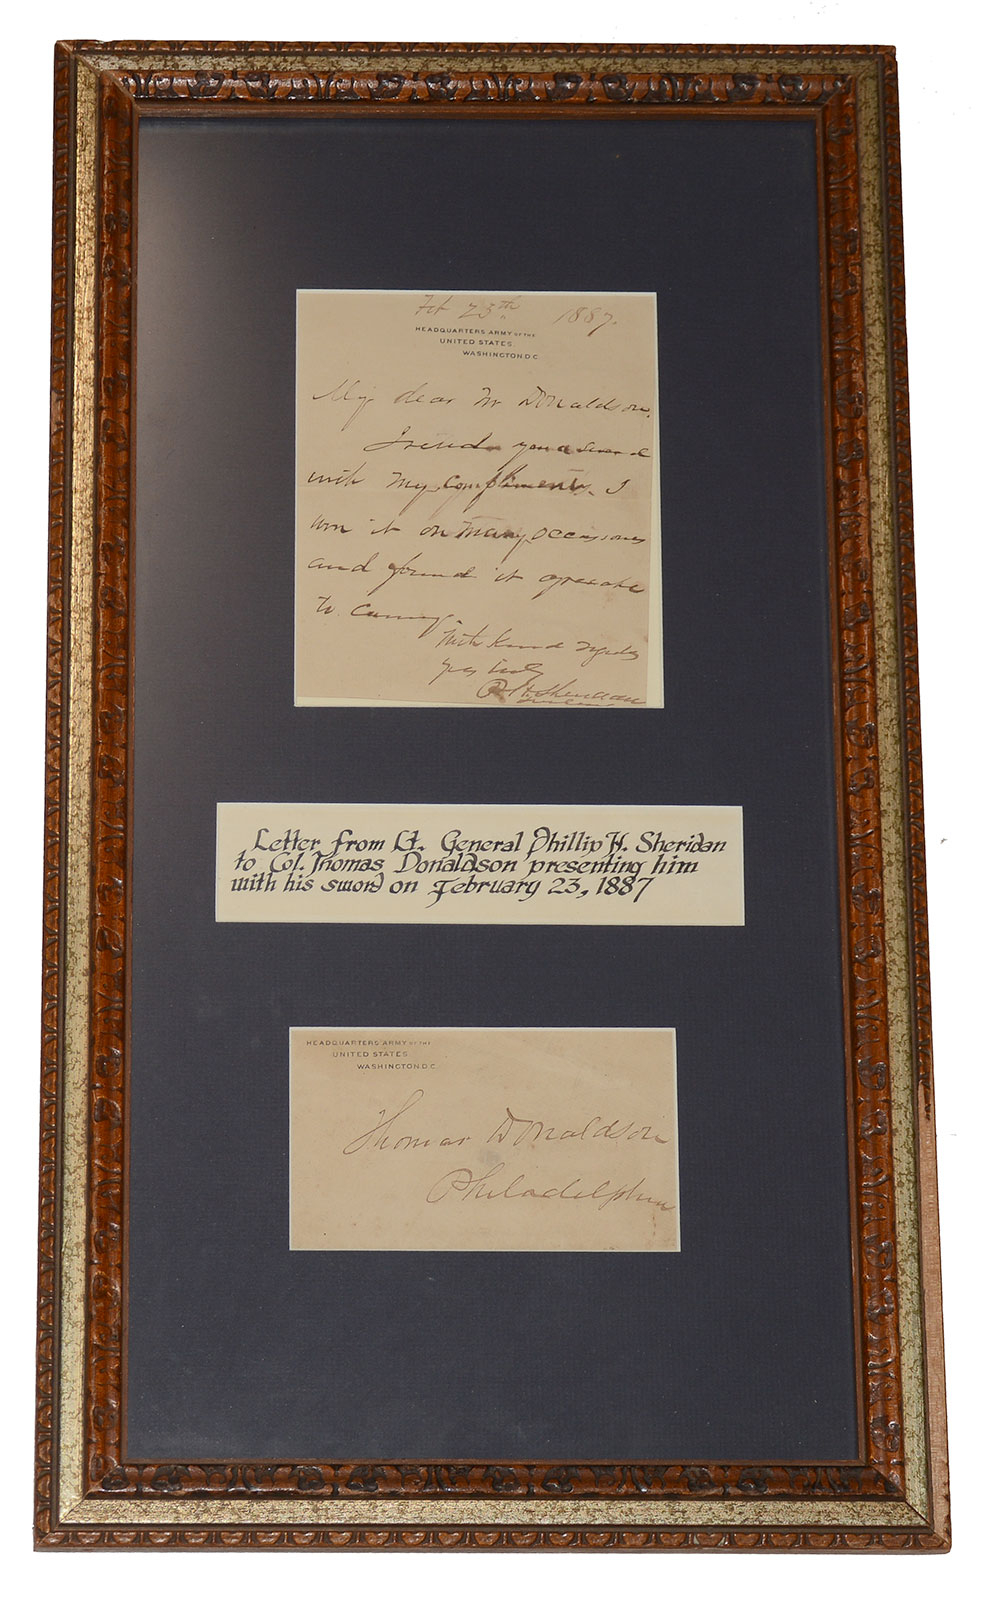 Feb 23th 1887.
HEADQUARTERS ARMY OF THE
UNITED STATES.
WASHINGTON D.C.
My dear Mr Donaldson,
I send you a sword
with my compliments. I
wore it on many occasions
and found it agreeable
to carry.
With kind regards
yours truly
P. H. Sheridan
Letter from Lt. General Phillip H. Sheridan
to Col. Thomas Donaldson presenting him
with his sword on February 23, 1887
HEADQUARTERS ARMY OF THE
UNITED STATES
WASHINGTON D.C.
Thomas Donaldson
Philadelphia